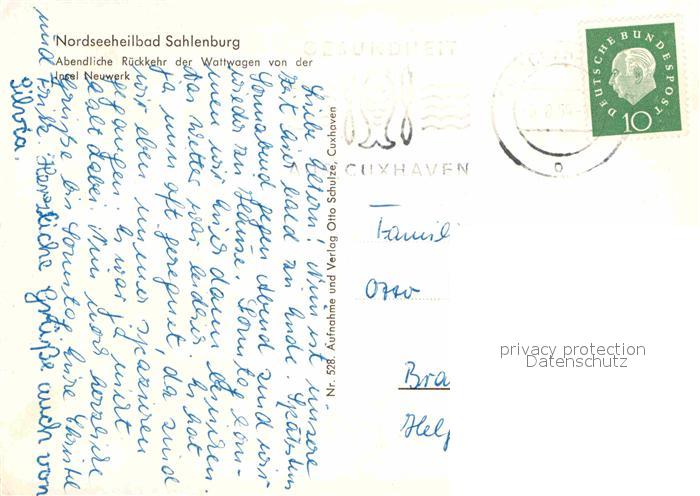 Nordseeheilbad Sahlenburg
Abendliche Rückkehr der Wattwagen von der
Insel Neuwerk
GESUNDHEIT
AUS CUXHAVEN
DEUTSCHE BUNDESPOST
10
Nr. 528. Aufnahme und Verlag Otto Schulze, Cuxhaven
Liebe Eltern! Nun ist unsere
Zeit hier bald zu Ende. Spätestens
Sonnabend gegen Abend sind wir
wieder zu Hause. Sonntag kom-
men wir hier dann
Das Wetter war leider. Es hat
ja nun oft geregnet, da sind
wir eben immer spazieren
gegangen. Es war ja nicht
kalt dabei. Nun noch herzliche
Grüße bis Sonntag Eure Christel
und Fritz. Herzliche Grüße auch von
Silvia.
Famil
Otto
Bra
Hel
privacy protection
Datenschutz